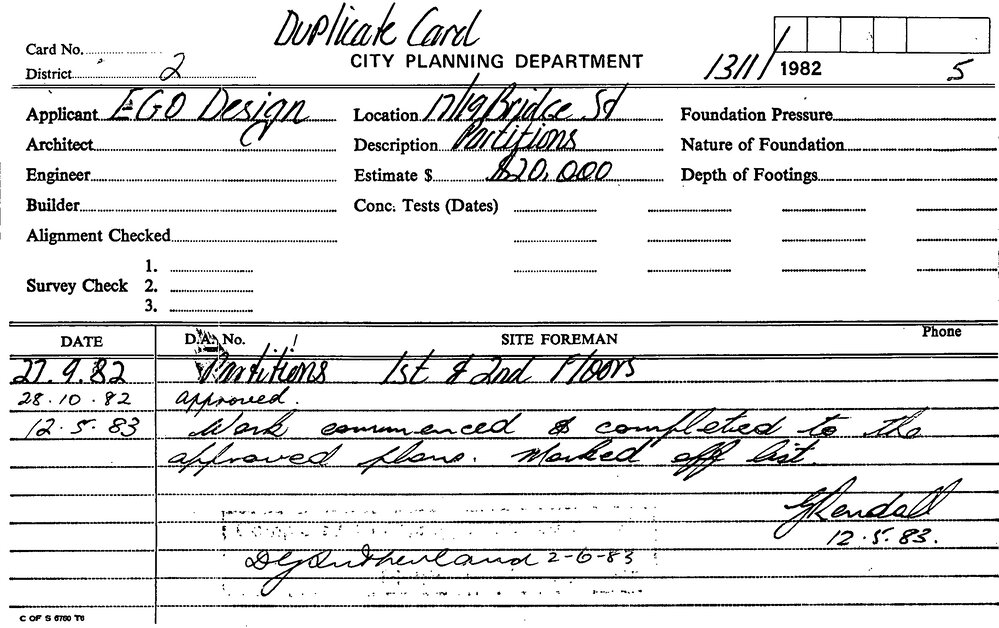 Duplicate Card
Card No.
CITY PLANNING DEPARTMENT
District 2
1311/1982 5
Applicant EGO Design Location 17/19 Bridge St Foundation Pressure
Architect Description Partitions Nature of Foundation
Engineer Estimate $ $20,000 Depth of Footings
Builder Conc. Tests (Dates)
Alignment Checked
1.
Survey Check 2.
3.
DATE D.A. No. SITE FOREMAN Phone
27.9.82 Partitions 1st & 2nd Floors
28.10.82 approved.
12.5.83 Work commenced & completed to the
approved plans. Marked off list.
GKendall
12.5.83.
DGSutherland 2-6-83
C OF S 6760 T6